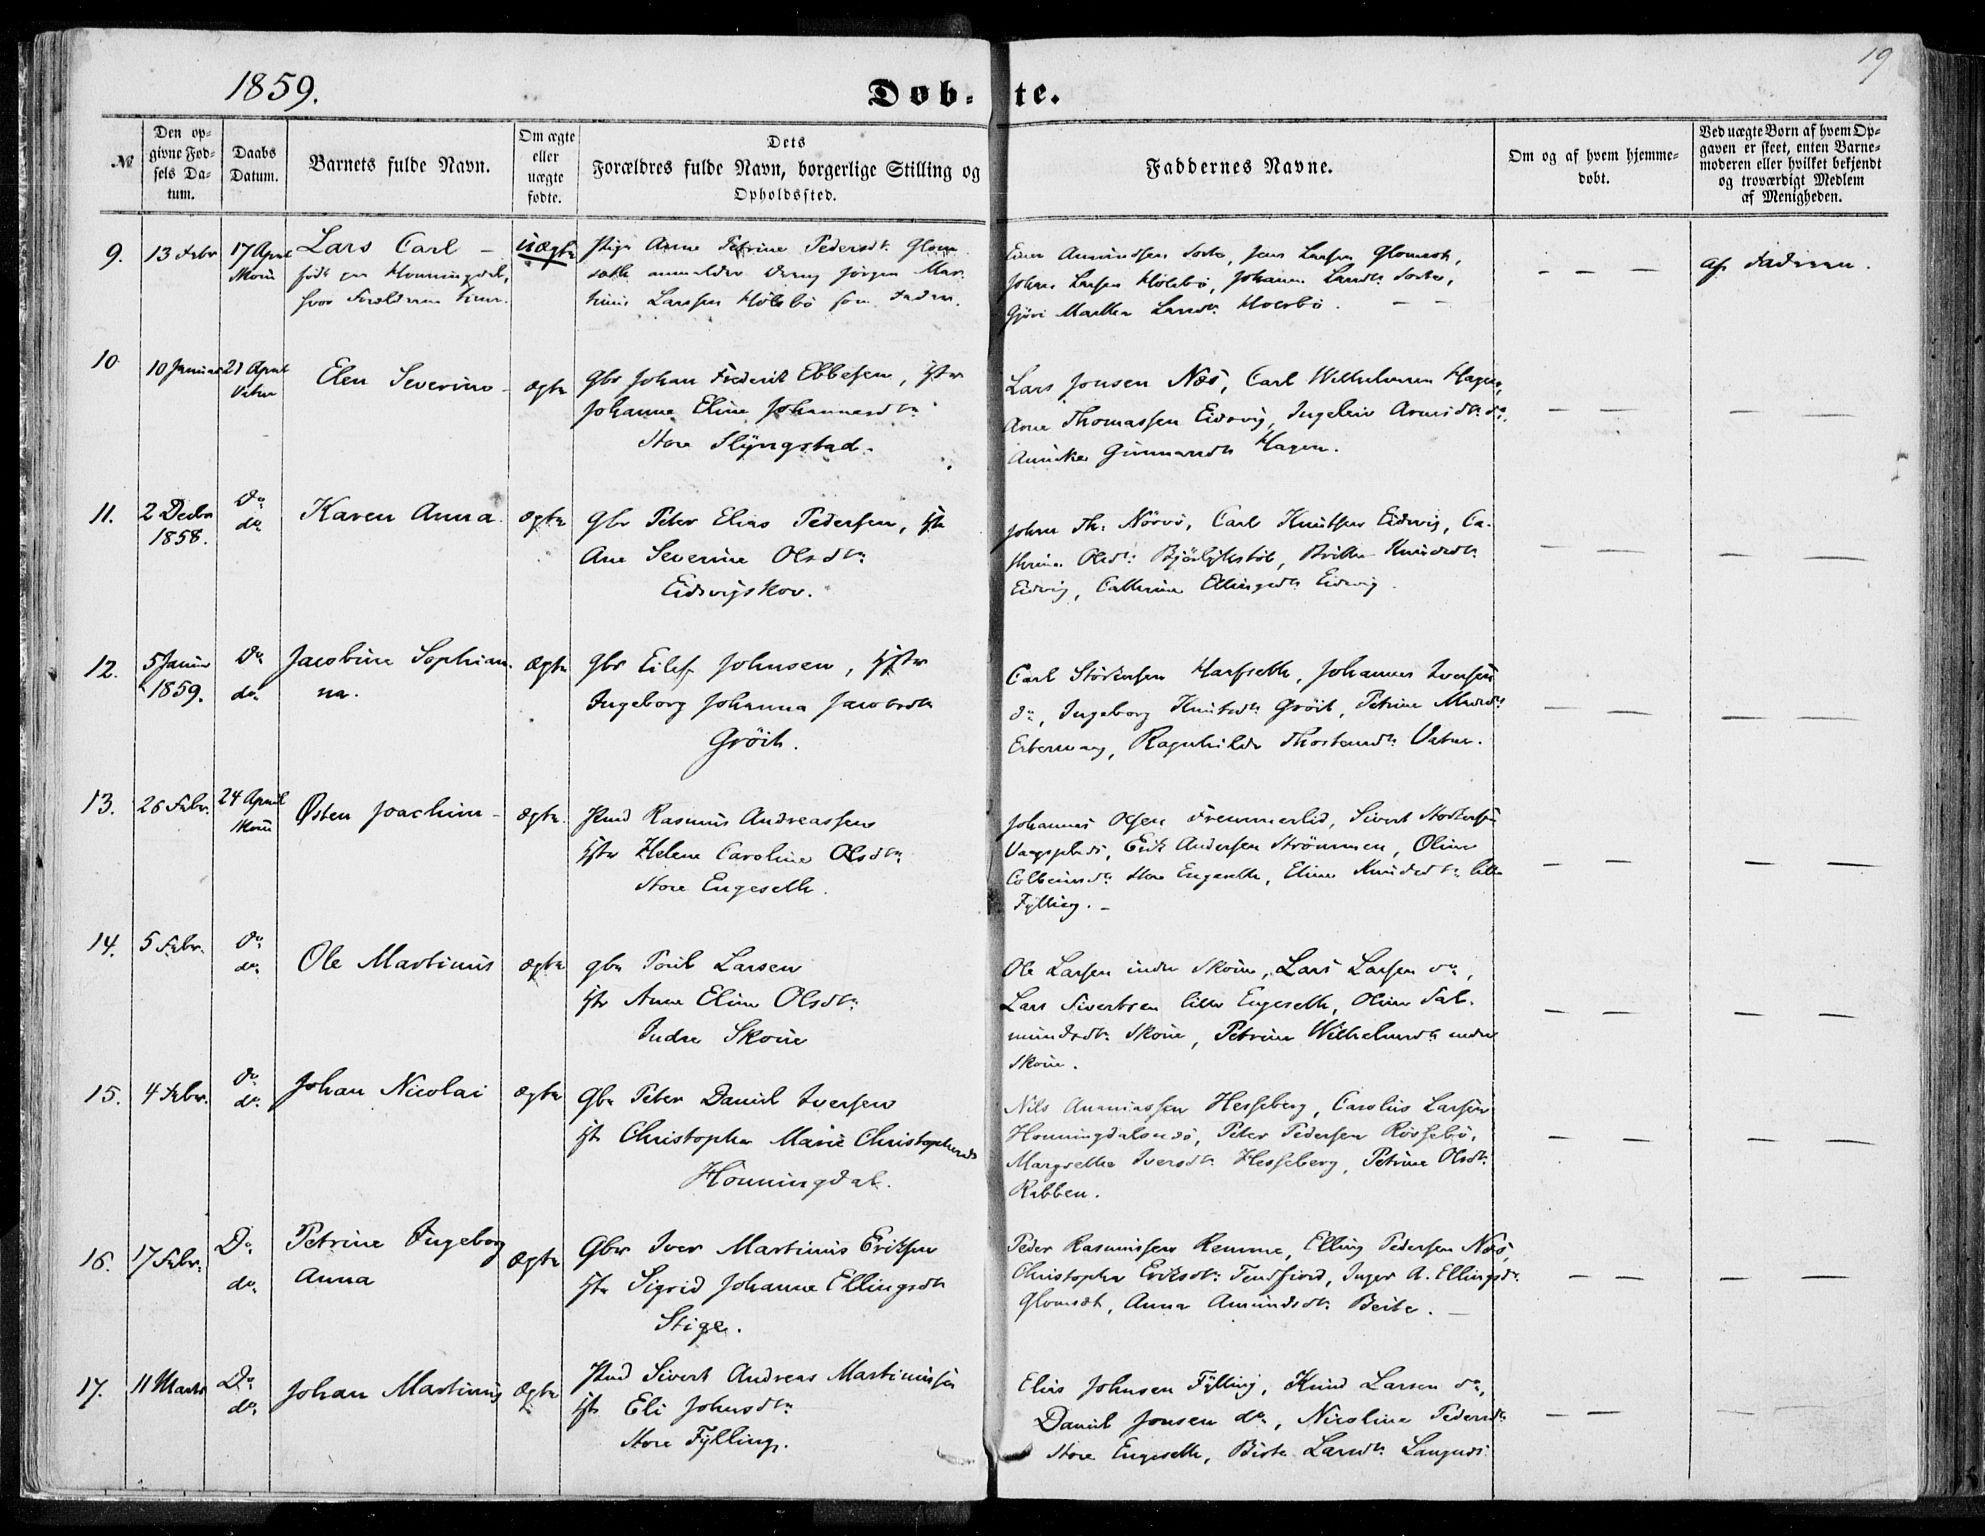 19
1859.
Døb-te.
№
Den opgivne Fødsels Datum.
Daabs Datum.
Barnets fulde Navn.
Om ægte eller uægte fødte.
Dets Forældres fulde Navn, borgerlige Stilling og Opholdssted.
Faddernes Navne.
Om og af hvem hjemmedøbt.
Ved uægte Børn af hvem Opgaven er skeet, enten Barnemoderen eller hvilket bekjendt og troværdigt Medlem af Menigheden.
9. 13 Febr 17 April Skoue
Lars Carl –
født paa Honningdal,
hvor Forældrene
uægte
Pige Anne Petrine Pedersdt. Glom
sæth anmelder Dreng Jørgen Mar
tinus Larssen Hölebö som Fader.
Einar Amundsen Sorte, Jens Larsen Glomset,
Johan Larsen Hölebö, Johanne Larsdt. Sorte,
Gjöri Marthe Larsdt.
af Faderen.
10 10 Januar 21 April Vatne
Elen Severine –
ægte
Gbr Johan Frederik Ebbesen, Hstr
Johanne Eline Johannesdtr
Store Slÿngstad.
Lars Jonsen Næs, Carl Wilhelmsen Hagen,
Arne Thomassen Eidsvig, Ingeleiv Arnesdtr. do.
Annike Gunnarsdtr Hagen.
11. 2 Decbr 1858. Do do
Karen Anna
ægte
Gbr Peter Elias Pedersen, Hstr
Ane Severine Olsdtr.
Eidsvigskov.
Johan Th. Nörvö, Carl Knutsen Eidsvig, Ca-
thrine Olsdtr. Björlykstöl, Brithe Knudsdtr
Eidsvig, Cathrine Ellingsdtr Eidsvig
12. 5 Januar 1859. Do do
Jacobine Sophian-
na.
ægte
Gbr Eilef Johnsen, Hstr
Ingeborg Johanna Jacobsdtr
Gröit.
Carl Störkersen Hanseth, Johannes Iversen
do, Ingeborg Knutsdtr Gröit, Petrine
Ragnhilde Thorstensdtr. Vatne.
13. 26 Febr. 24 April Skoue
Østen Joachim –
ægte.
Hmd Rasmus Andreassen
Hstr Helene Caroline Olsdtr
Store Engeseth.
Johannes Olsen Fremmerlid, Sivert
Erik Andersen Strömmen, Oline
Colbeinsdtr. Store Engeseth, Eline Knudsdtr. lille
Fÿlling. –
14. 5 Febr. Do do
Ole Martinus
ægte
Gbr Poul Larsen
Hstr Anne Eline Olsdtr.
Indre Skoue
Ole Larsen indre Skoue, Lars Larsen do,
Lars Sivertsen lille Engeseth, Oline Sal-
mundsdtr. Skoue, Petrine Wilhelmsdtr indre
Skoue.
15. 4 Febr. Do do.
Johan Nicolai
ægte
Gbr Peter Daniel Iversen
Hstr Christophe Marie Christophersdt
Honningdal.
Nils Ananiassen Hesseberg, Carolus Larsen
Peter Pedersen Rössebö,
Margrethe Iversdtr. Hesseberg, Petrine Olsdtr.
Rabben.
16. 17 Febr. Do. do.
Petrine Ingeborg
Anna
ægte
Gbr Iver Martinus Eriksen
Hstr Sigrid Johanne Ellingsdtr
Stige.
Peder Rasmussen Remme, Elling Pedersen Næs,
Christophe Eriksdtr. Tendfjord, Inger A. Ellingsdtr.
Glomset, Anna Amundsdtr. Beite.
17. 11 Marts Do do.
Johan Martinus
ægte
Hmd Sivert Andreas Martinussen
Hstr Eli Johnsdtr.
Store Fÿlling.
Elias Johnsen Fÿlling, Knud Larsen do,
Daniel Jonsen do, Nicoline Pedersdtr
Store Engeseth, Birte Larsdtr Langnes